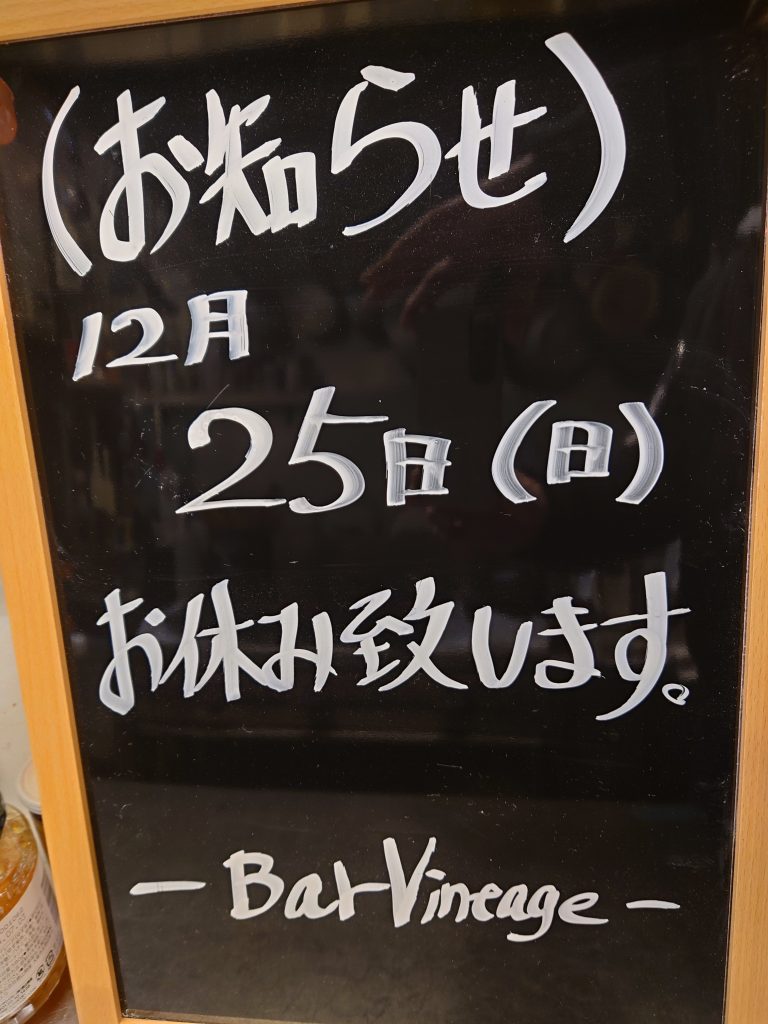 (お知らせ)
12月
25日(日)
お休み致します。
- Bar Vineage -